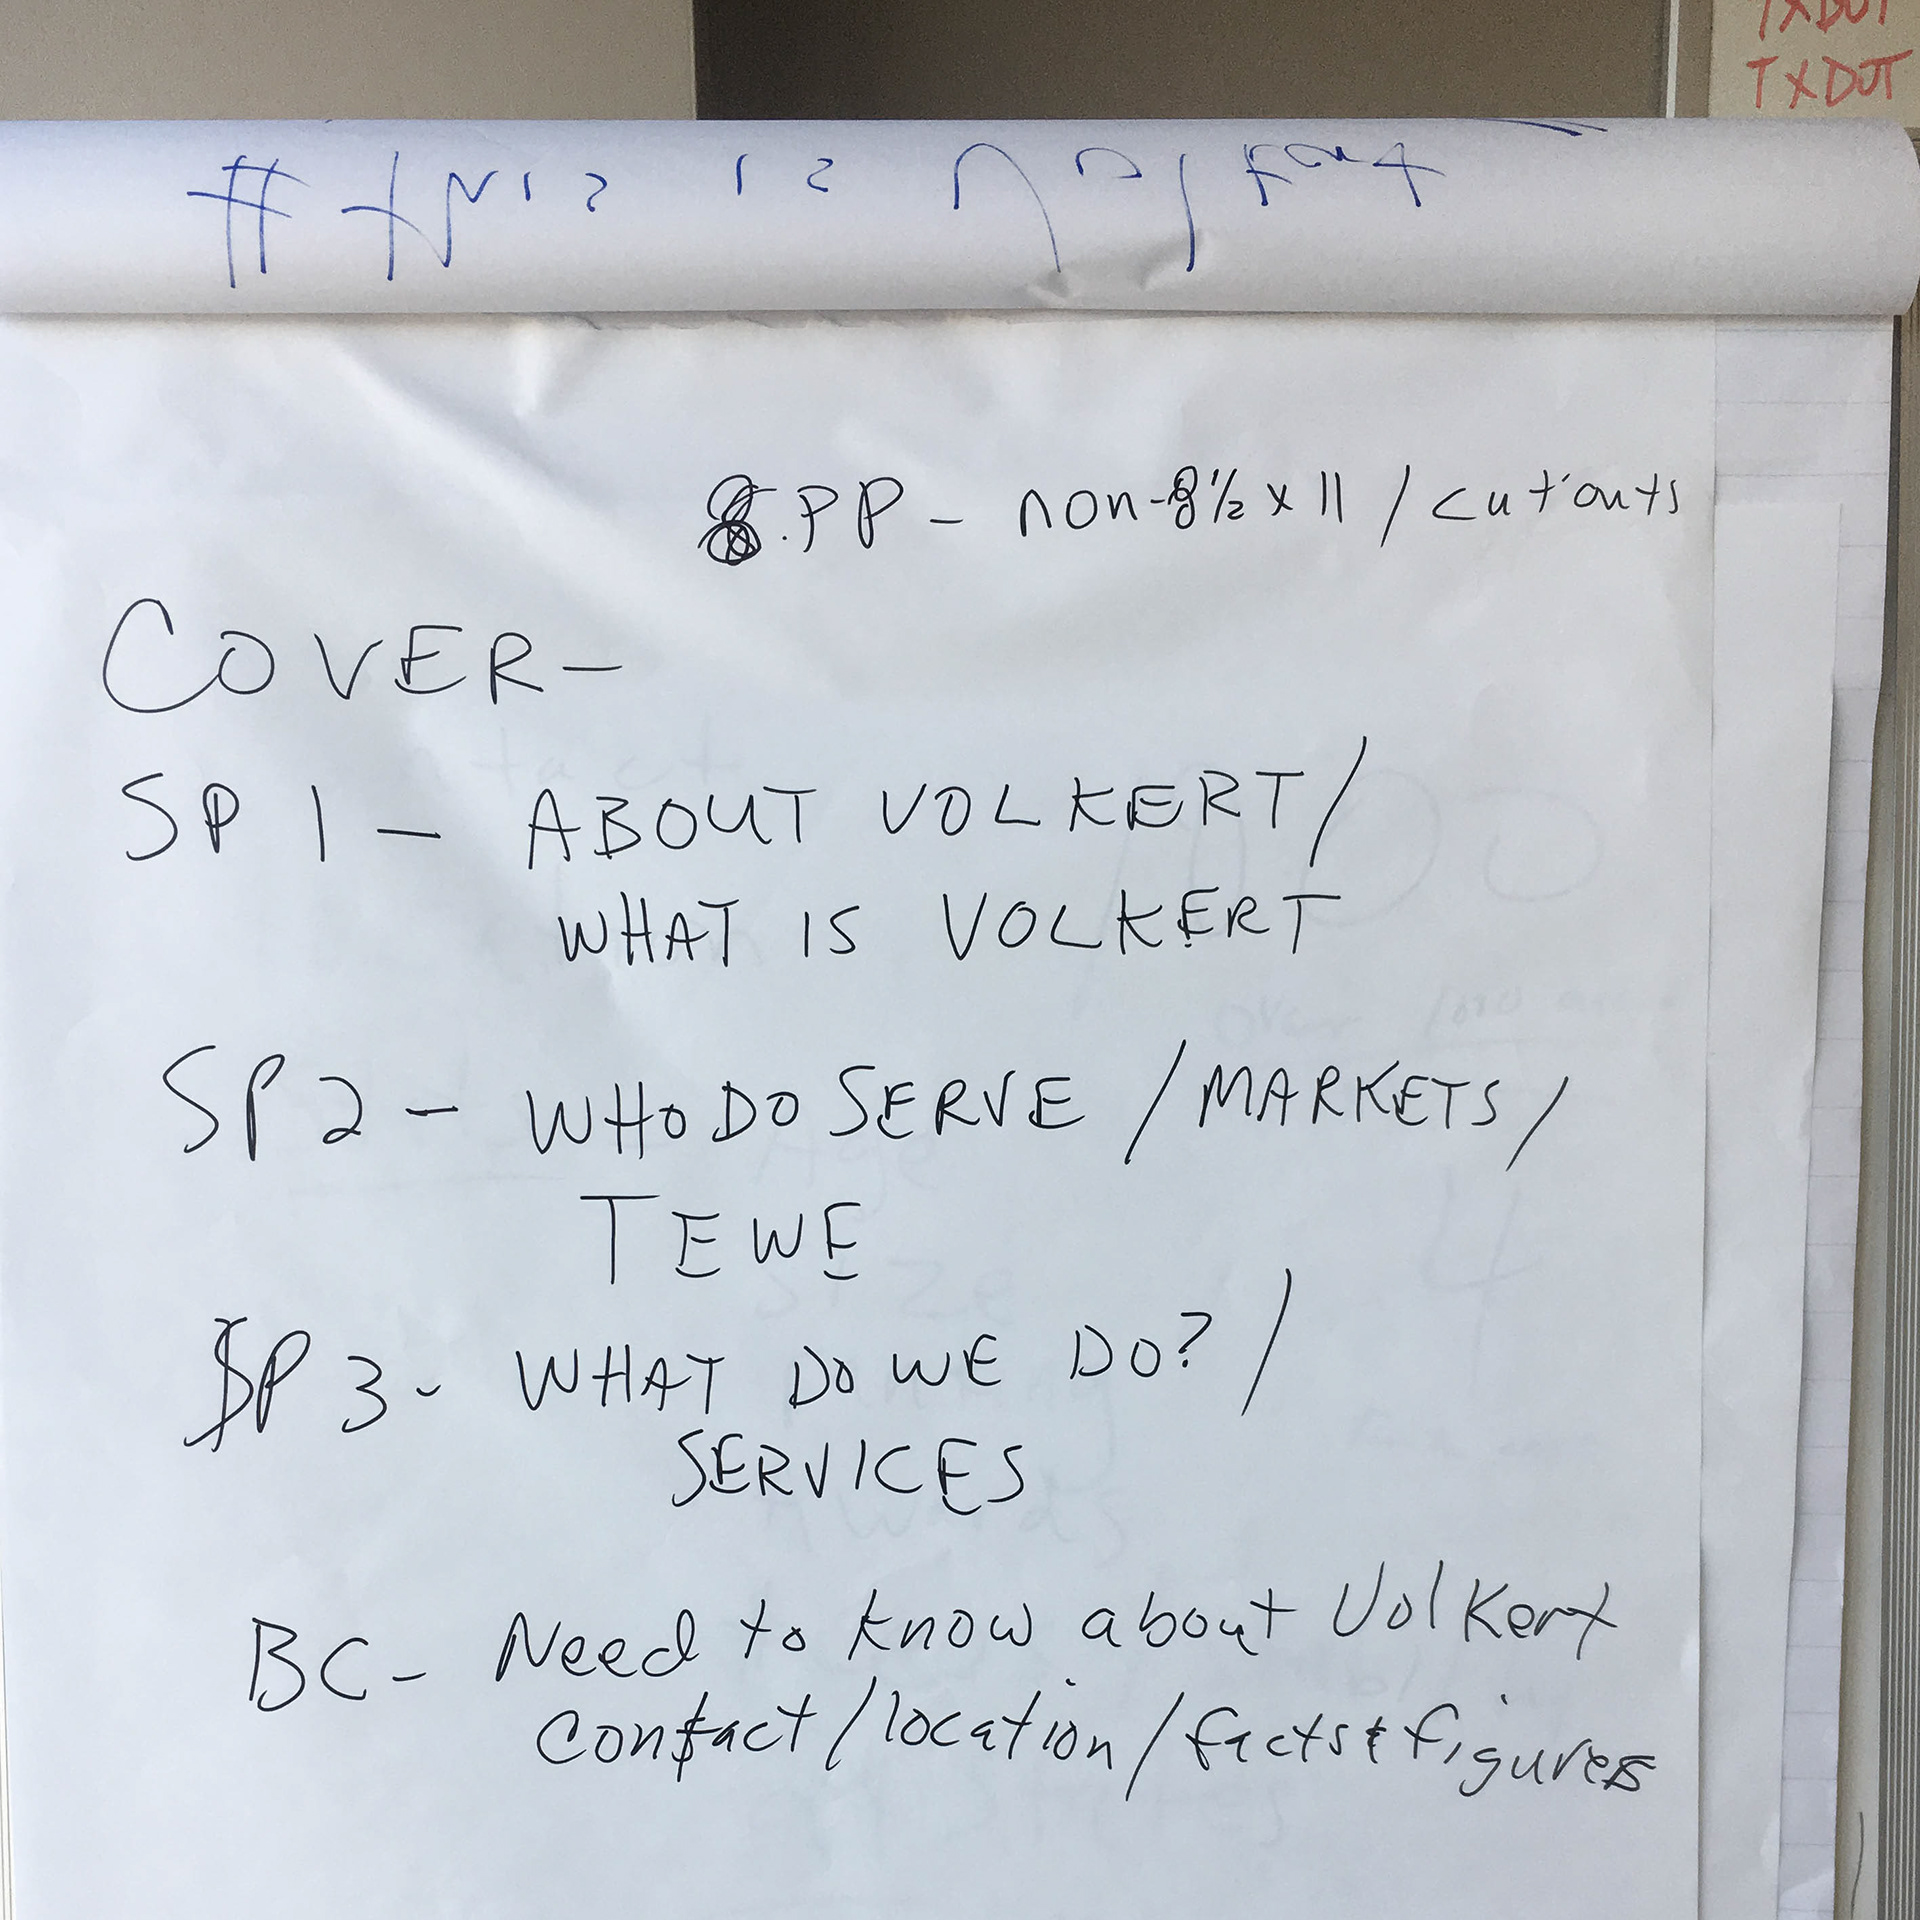 TXDOT
TXDOT
8.PP - non-8½ x 11 / cut outs
COVER -
SP 1 - ABOUT VOLKERT/
WHAT IS VOLKERT
SP 2 - WHO DO SERVE / MARKETS /
TEWE
SP 3 - WHAT DO WE DO? /
SERVICES
BC - Need to know about Volkert
contact/location/facts & figures